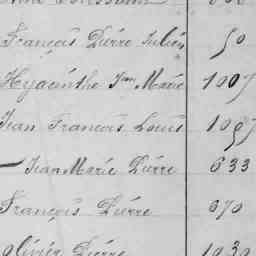 François Pierre Julien 50
Hyacinthe Jean Marie 1007
Jean François Louis 1057
— Jean Marie Pierre 633
François Pierre 670
Olivier Pierre 1030